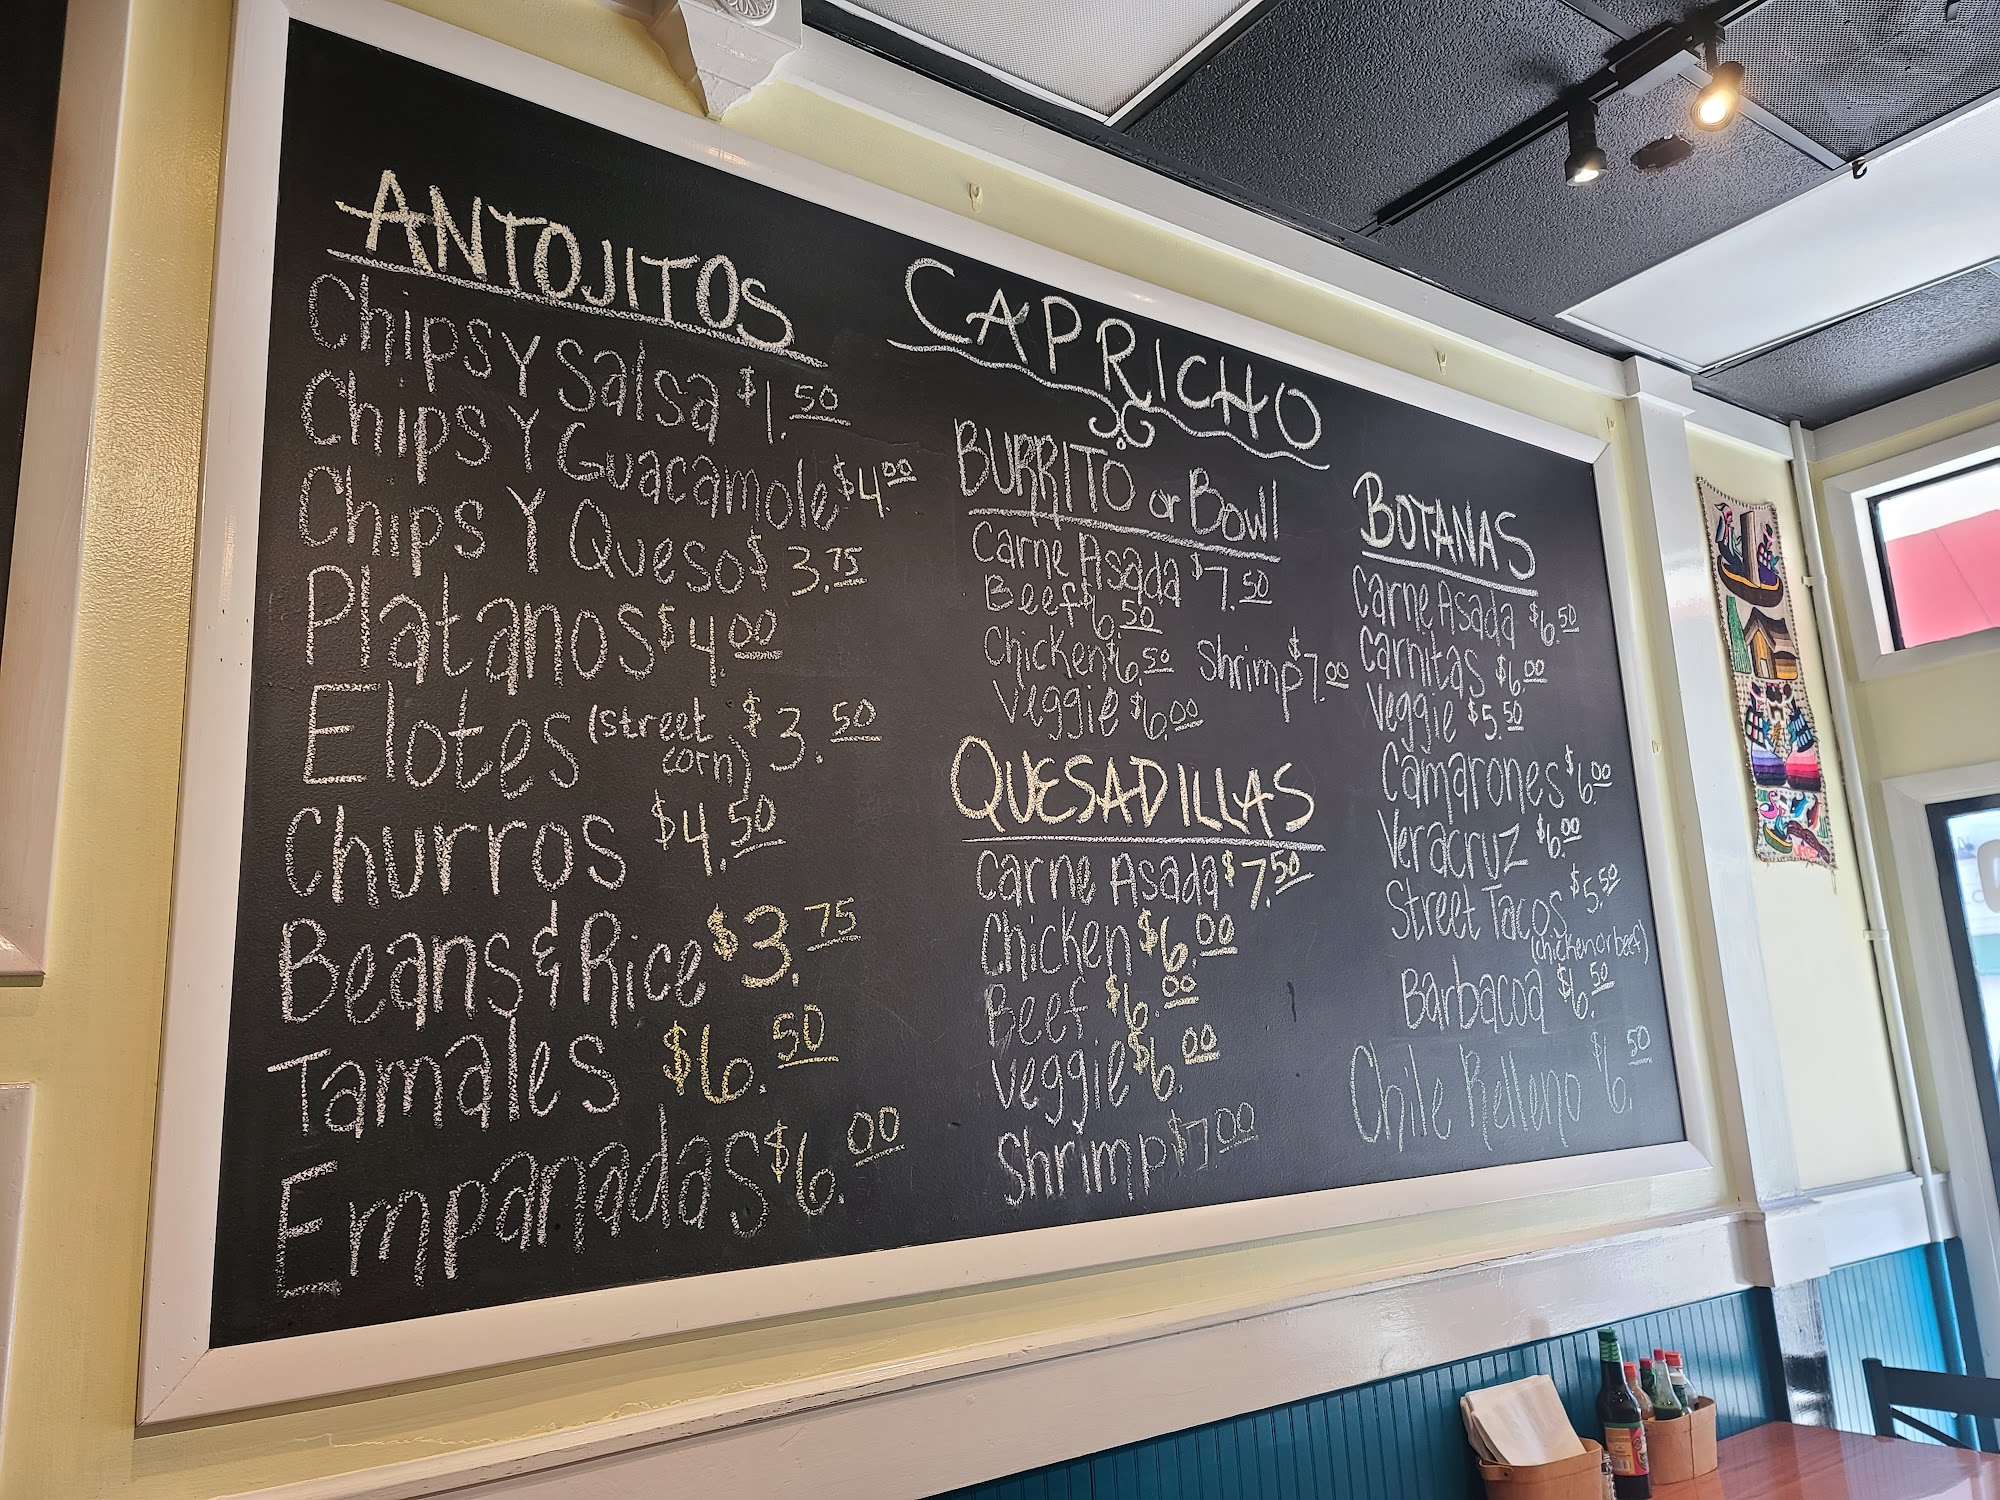 ANTOJITOS
Chips Y Salsa $1.50
Chips Y Guacamole $4.00
Chips Y Queso $3.75
Platanos $4.00
Elotes (street corn) $3.50
Churros $4.50
Beans & Rice $3.75
Tamales $6.50
Empanadas $6.00
CAPRICHO
BURRITO or Bowl
Carne Asada $7.50
Beef $6.50
Chicken $6.50 Shrimp $7.00
Veggie $6.00
QUESADILLAS
Carne Asada $7.50
Chicken $6.00
Beef $6.00
Veggie $6.00
Shrimp $7.00
BOTANAS
Carne Asada $6.50
Carnitas $6.00
Veggie $5.50
Camarones $6.00
Veracruz $6.00
Street Tacos $5.50
(chicken or beef)
Barbacoa $6.50
Chile Relleno $6.50